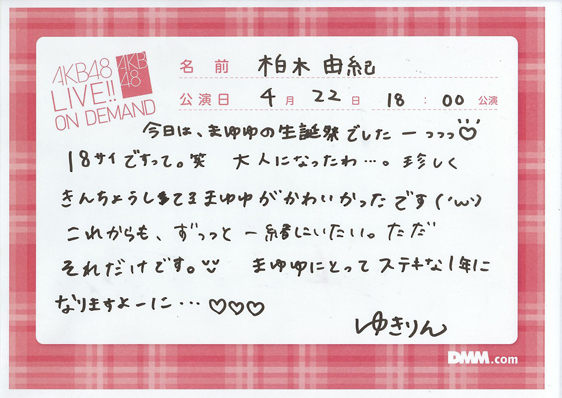 AKB48
LIVE!!
ON DEMAND
AKB
48
名前 柏木由紀
公演日 4月22日 18:00公演
今日は、まゆゆの生誕祭でしたーっっっ♡
18サイですって。笑 大人になったわ…。珍しく
きんちょうしてるまゆゆがかわいかったです(・ω・)
これからも、ずっっと一緒にいたい。ただ
それだけです。 まゆゆにとってステキな1年に
なりますよーに…♡♡♡
ゆきりん
DMM.com